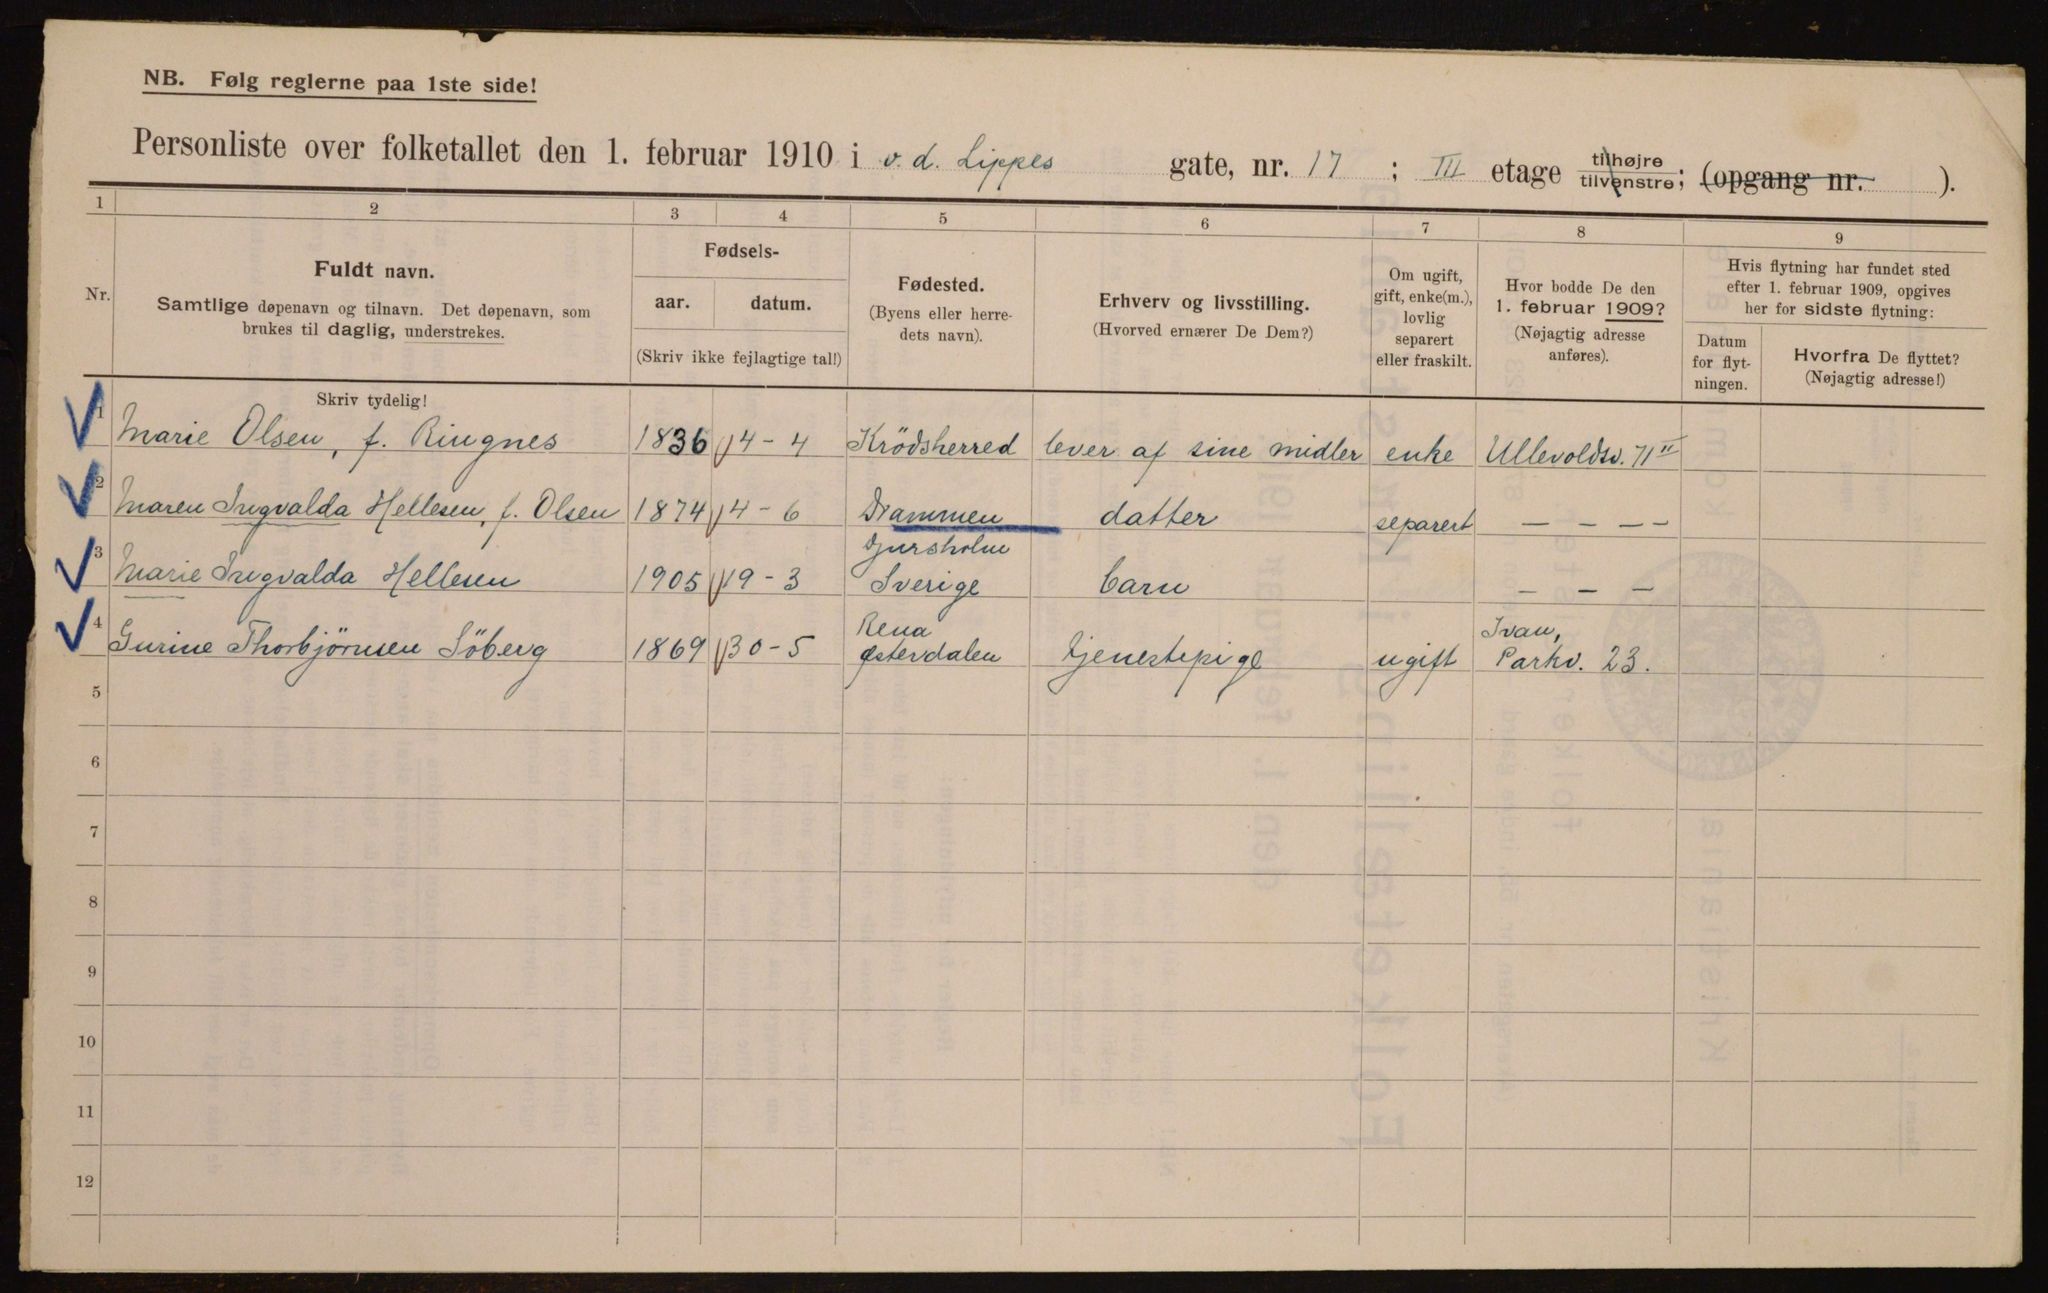 NB. Følg reglerne paa 1ste side!
Personliste over folketallet den 1. februar 1910 i v. d. Lippes gate, nr. 17 ; III etage tilhøjre tilvenstre; (opgang nr. ).
1 2 3 4 5 6 7 8 9
Nr.
Fuldt navn.
Samtlige døpenavn og tilnavn. Det døpenavn, som
brukes til daglig, understrekes.
Skriv tydelig!
Fødsels-
aar. datum.
(Skriv ikke fejlagtige tal!)
Fødested.
(Byens eller herre-
dets navn).
Erhverv og livsstilling.
(Hvorved ernærer De Dem?)
Om ugift,
gift, enke(m.),
lovlig
separert
eller fraskilt.
Hvor bodde De den
1. februar 1909?
(Nøjagtig adresse
anføres).
Hvis flytning har fundet sted
efter 1. februar 1909, opgives
her for sidste flytning:
Datum
for flyt-
ningen.
Hvorfra De flyttet?
(Nøjagtig adresse!)
1 Marie Olsen, f. Ringnes 1836 4-4 Krödsherred lever af sine midler enke Ullevoldsv. 71 II
2 Maren Ingvalda Hellesen, f. Olsen 1874 4-6 Drammen datter separert — — — —
3 Marie Ingvalda Hellesen 1905 19-3 Djursholm Sverige barn — — —
4 Gurine Thorbjörnsen Söberg 1869 30-5 Rena Østerdalen tjenestepige ugift Ivan, Parkv. 23.
5
6
7
8
9
10
11
12